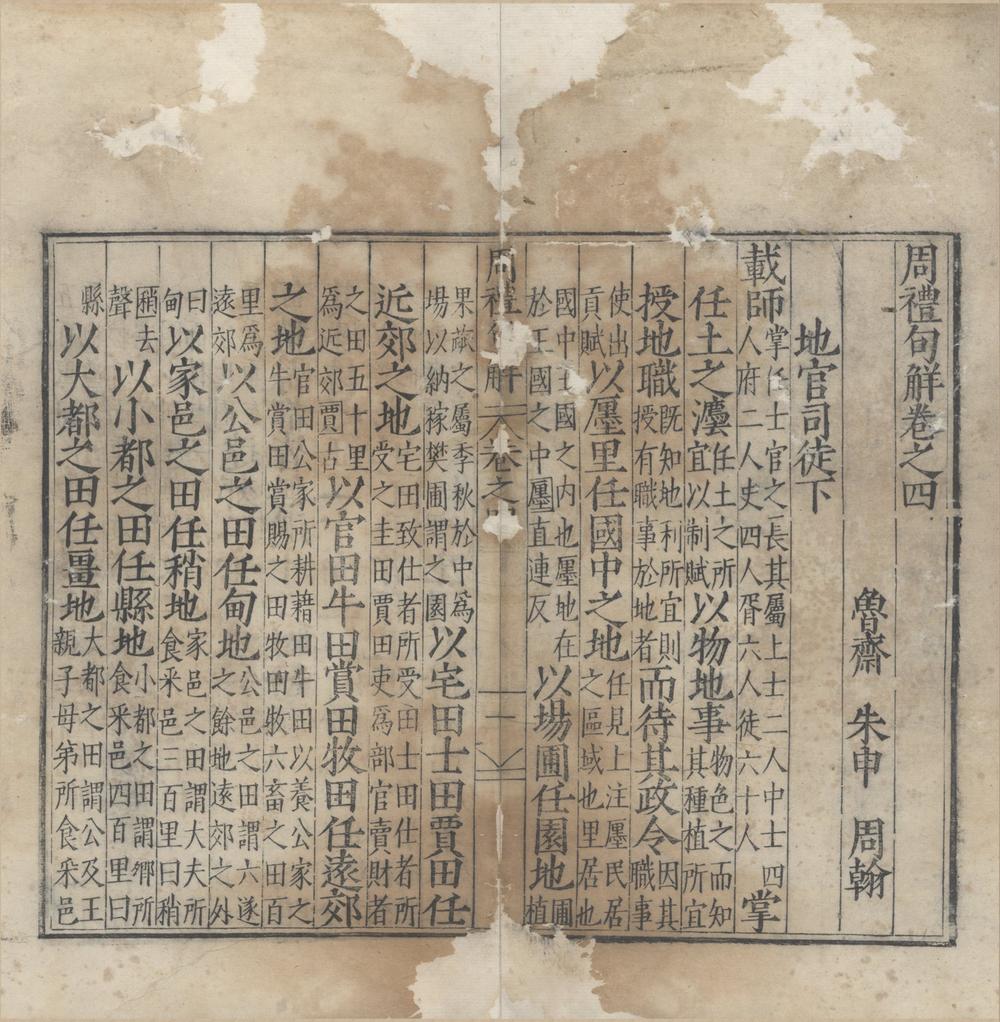 周禮句觧卷之四
魯齋 朱申 周翰
地官司徒下
載師掌任土官之長其屬上士二人中士四人府二人史四人胥六人徒六十人掌
任土之灋任土之所宜以制賦以物地事物色之而知其種植所宜
授地職既知地利所宜則授有職事於地者而待其政令因其職事
使出貢賦以廛里任國中之地任見上注廛民居之區域也里居也
國中王國之内也廛地在於王國之中廛直連反以場圃任園地圃植
周禮句解 卷之四 一
果蓏之屬季秋於中為場以納稼樊圃謂之園以宅田士田賈田任
近郊之地宅田致仕者所受士田仕者所受之圭田賈田吏為部官賣財者
之田五十里為近郊賈古以官田牛田賞田牧田任遠郊
之地官田公家所耕藉田牛田以養公家之牛賞田賞賜之田牧田牧六畜之田百
里為遠郊以公邑之田任甸地公邑之田謂六遂之餘地遠郊之外
曰甸以家邑之田任稍地家邑之田謂大夫所食采邑三百里曰稍
稍去聲以小都之田任縣地小都之田謂卿所食采邑四百里曰
縣以大都之田任畺地大都之田謂公及王親子母弟所食采邑